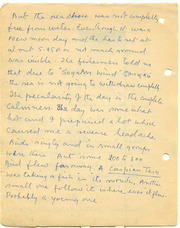 But the sea shore was not completly
free from water. Eventhough it was a
New moon day and the sea to set at
about 5.45 P.M not much ground
was visible. The fishermen told me
that due to "
the sea is not going to withdraw completly.
The peculiarity of the day is the complete
Calmness. The day was some what
hot and I prepaired a hot whose
Caused me a severe headache
Birds singly and in small groups
were there. But some 80 to 100
Bird flew far away. A Caspian Tern
was taking a fish in its mouth, Another
small one follow it where ever it flies.
Probably a young one.